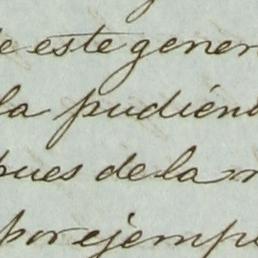 de este gener
la pudiénd
pues de la m
por ejemp